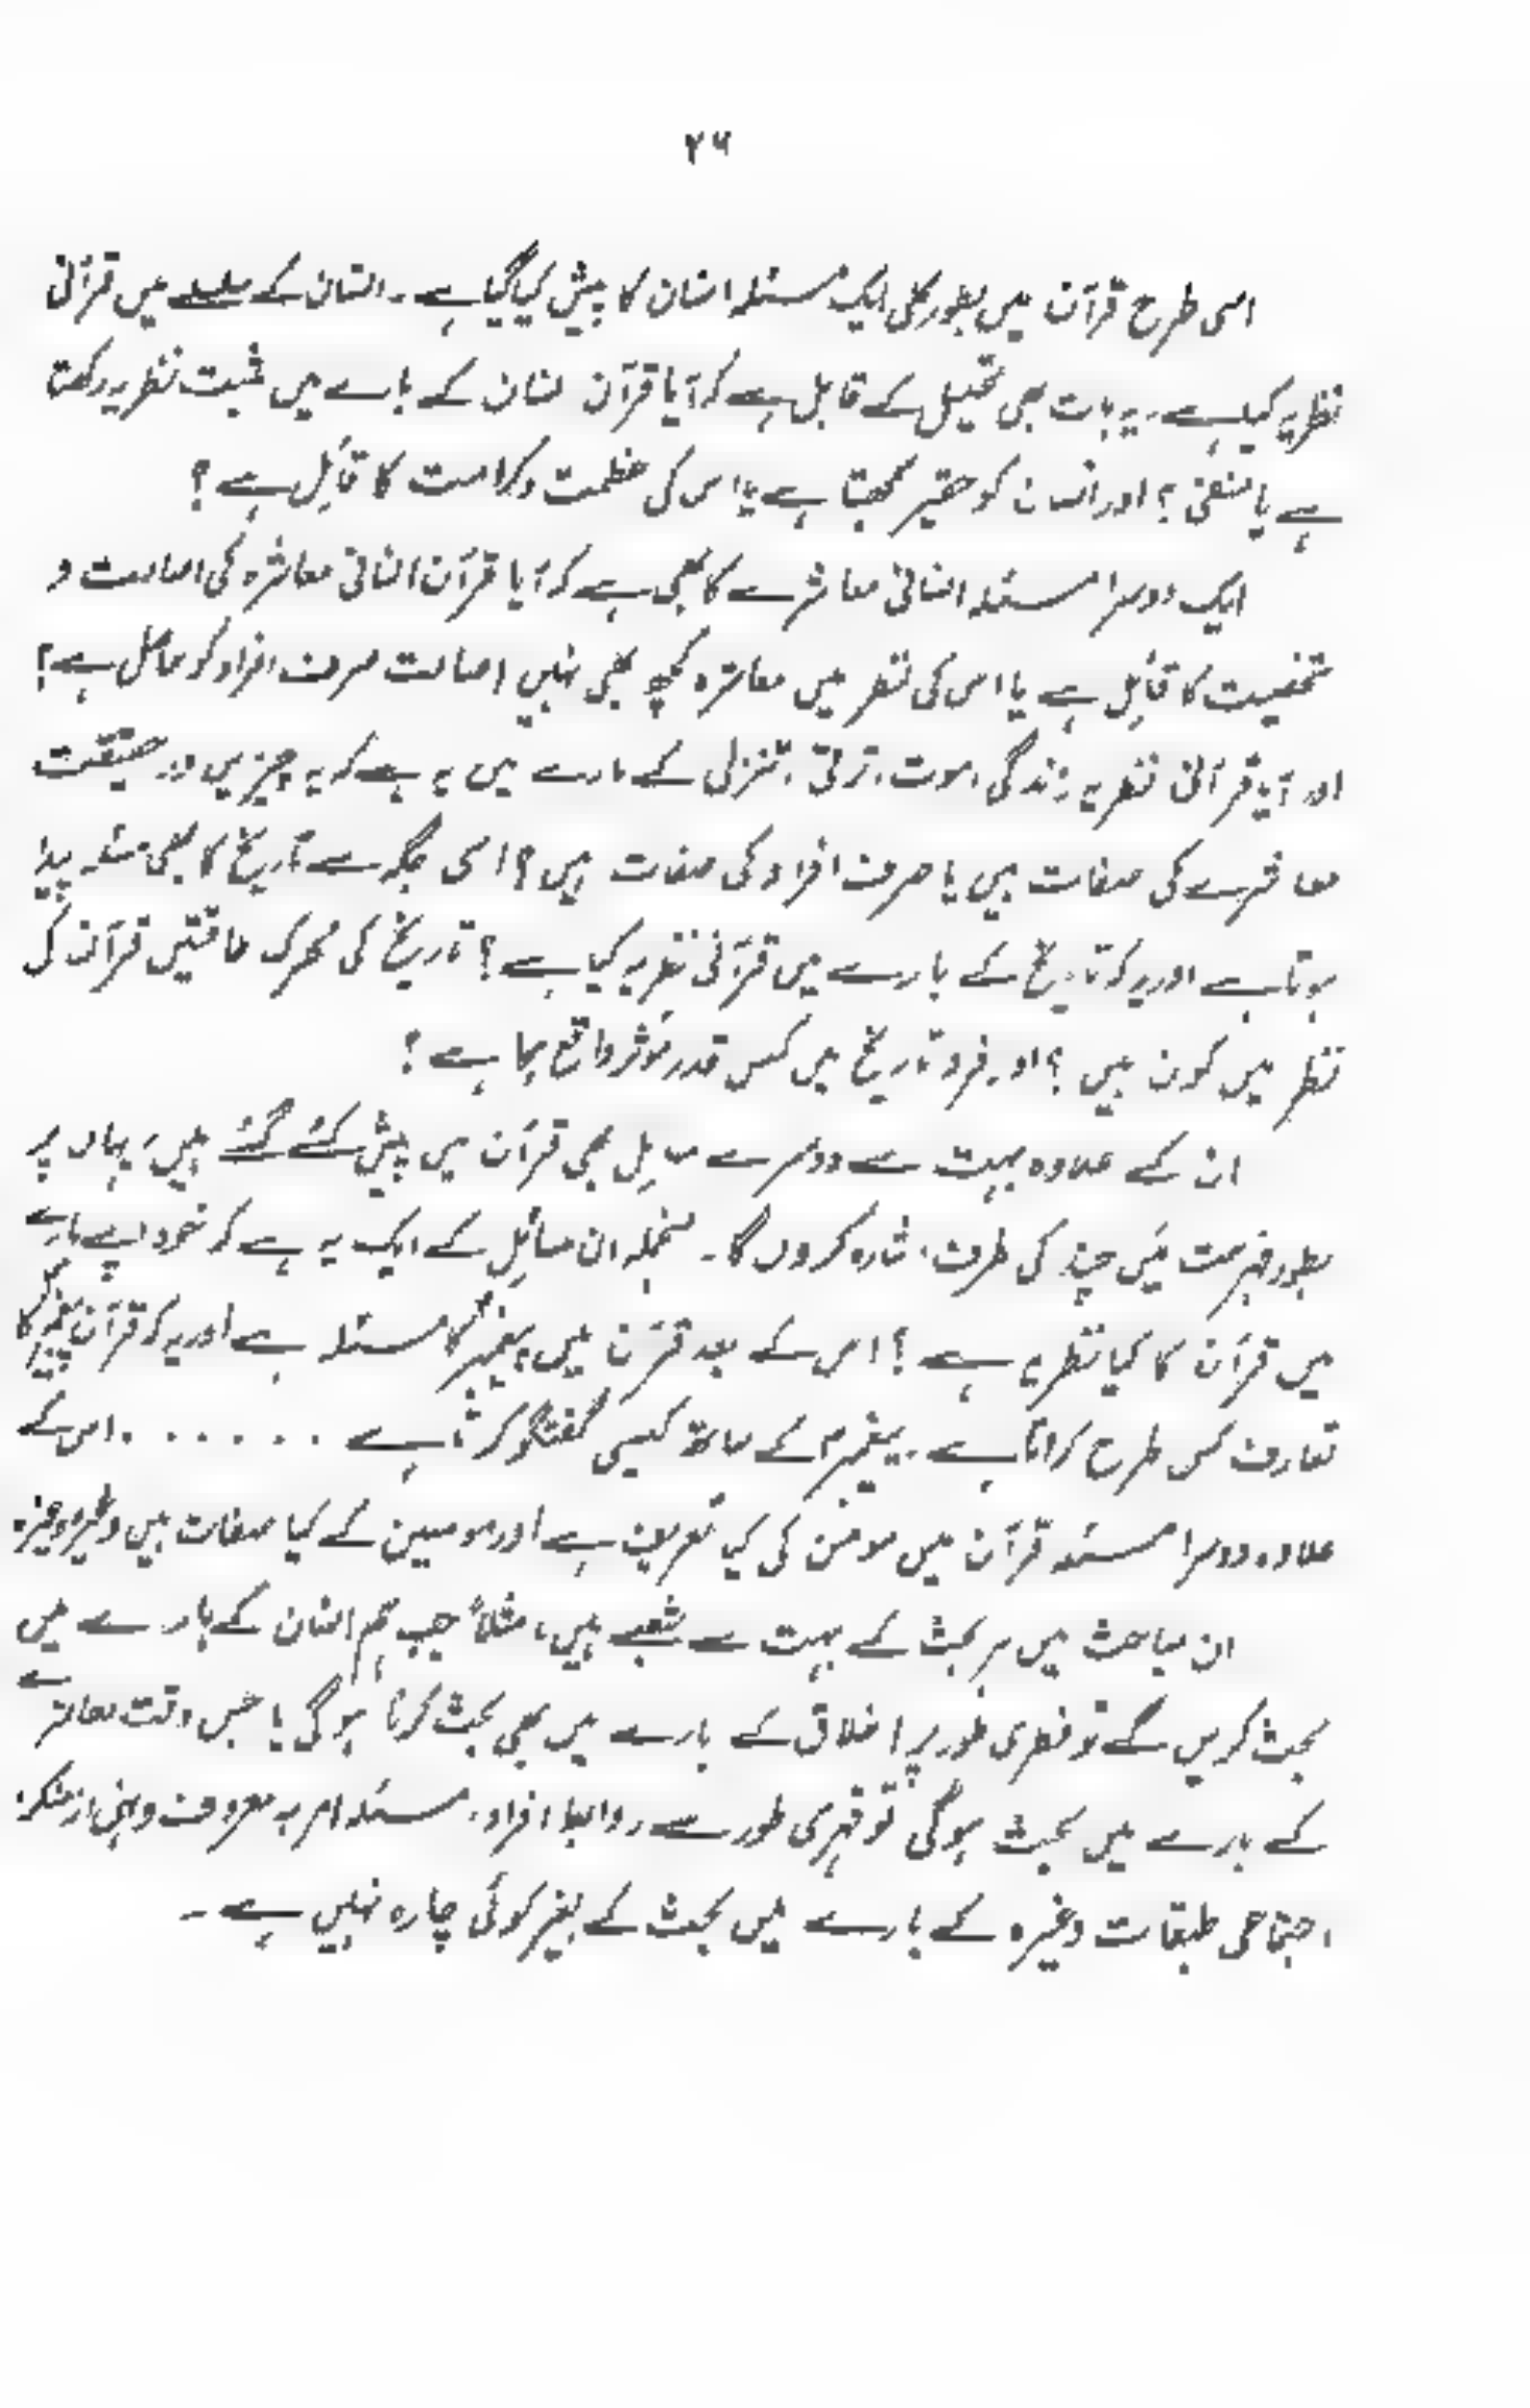 ۲۶
اسی طرح قرآن میں بطور کلی ایک مسئلہ انسان کا پیش کیا گیا ہے۔ انسان کے سلسلے میں قرآنی
نظریہ کیا ہے۔ یہ بات بھی تحلیل کے قابل ہے کہ آیا قرآن انسان کے بارے میں مثبت نظریہ رکھتا
ہے یا منفی؟ اور انسان کو حقیر سمجھتا ہے یا اس کی عظمت و کرامت کا قائل ہے؟
ایک دوسرا مسئلہ انسانی معاشرے کا بھی ہے کہ آیا قرآن انسانی معاشرہ کی اصالت و
شخصیت کا قائل ہے یا اس کی نظر میں معاشرہ کچھ بھی نہیں اصالت صرف افراد کو حاصل ہے؟
اور آیا قرآنی نظریہ زندگی، موت، ترقی، تنزلی کے بارے میں یہ ہے کہ یہ چیزیں در حقیقت
معاشرے کی صفات ہیں یا صرف افراد کی صفات ہیں؟ اسی جگہ سے تاریخ کا بھی مسئلہ پیدا
ہوتا ہے اور یہ کہ تاریخ کے بارے میں قرآنی نظریہ کیا ہے؟ تاریخ کی محرک طاقتیں قرآن کی
نظر میں کون ہیں؟ اور فرد تاریخ میں کس قدر مؤثر واقع ہوا ہے؟
ان کے علاوہ بہت سے دوسرے مسائل بھی قرآن میں پیش کئے گئے ہیں، یہاں پر
بطور فہرست میں چند کی طرف اشارہ کروں گا۔ منجملہ ان مسائل کے ایک یہ ہے کہ خود اپنے بارے
میں قرآن کا کیا نظریہ ہے؟ اس کے بعد قرآن میں پیغمبرؐ کا مسئلہ ہے اور یہ کہ قرآن پیغمبرؐ کا
تعارف کس طرح کراتا ہے۔ پیغمبرؐ کے ساتھ کیسی گفتگو کرتا ہے . . . . . . . اس کے
علاوہ دوسرا مسئلہ قرآن میں مومن کی کیا تعریف ہے اور مومنین کے کیا صفات ہیں وغیرہ وغیرہ
ان مباحث میں ہر بحث کے بہت سے شعبے ہیں، مثلاً جب ہم انسان کے بارے میں
بحث کریں گے تو فطری طور پر اخلاق کے بارے میں بھی بحث کرنا ہوگی یا جس وقت معاشرے
کے بارے میں بحث ہوگی تو قہری طور سے روابط افراد، مسئلہ امر بہ معروف و نہی از منکر،
اجتماعی طبقات وغیرہ کے بارے میں بحث کے بغیر کوئی چارہ نہیں ہے۔